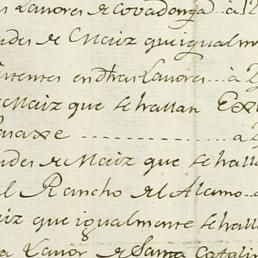 Lavores de Covadonga .. à
des de Maiz que igualm
en otras Lavores ... à
Maiz que se hallan Exx
axe ............ à
des de Maiz que se halla
l Rancho del Alamo ..
iz que igualmente se hall
a Lavor de Santa Catalin